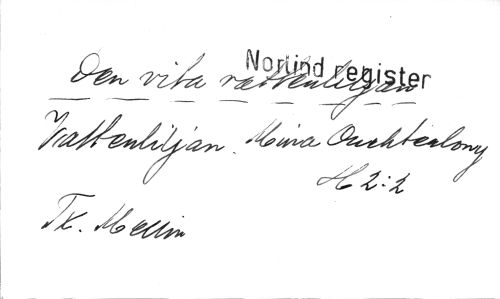 Norlind register
Den vita vattenliljan
Vattenliljan. Mina Ouchterlony
H 2:2
Tx. Mellin